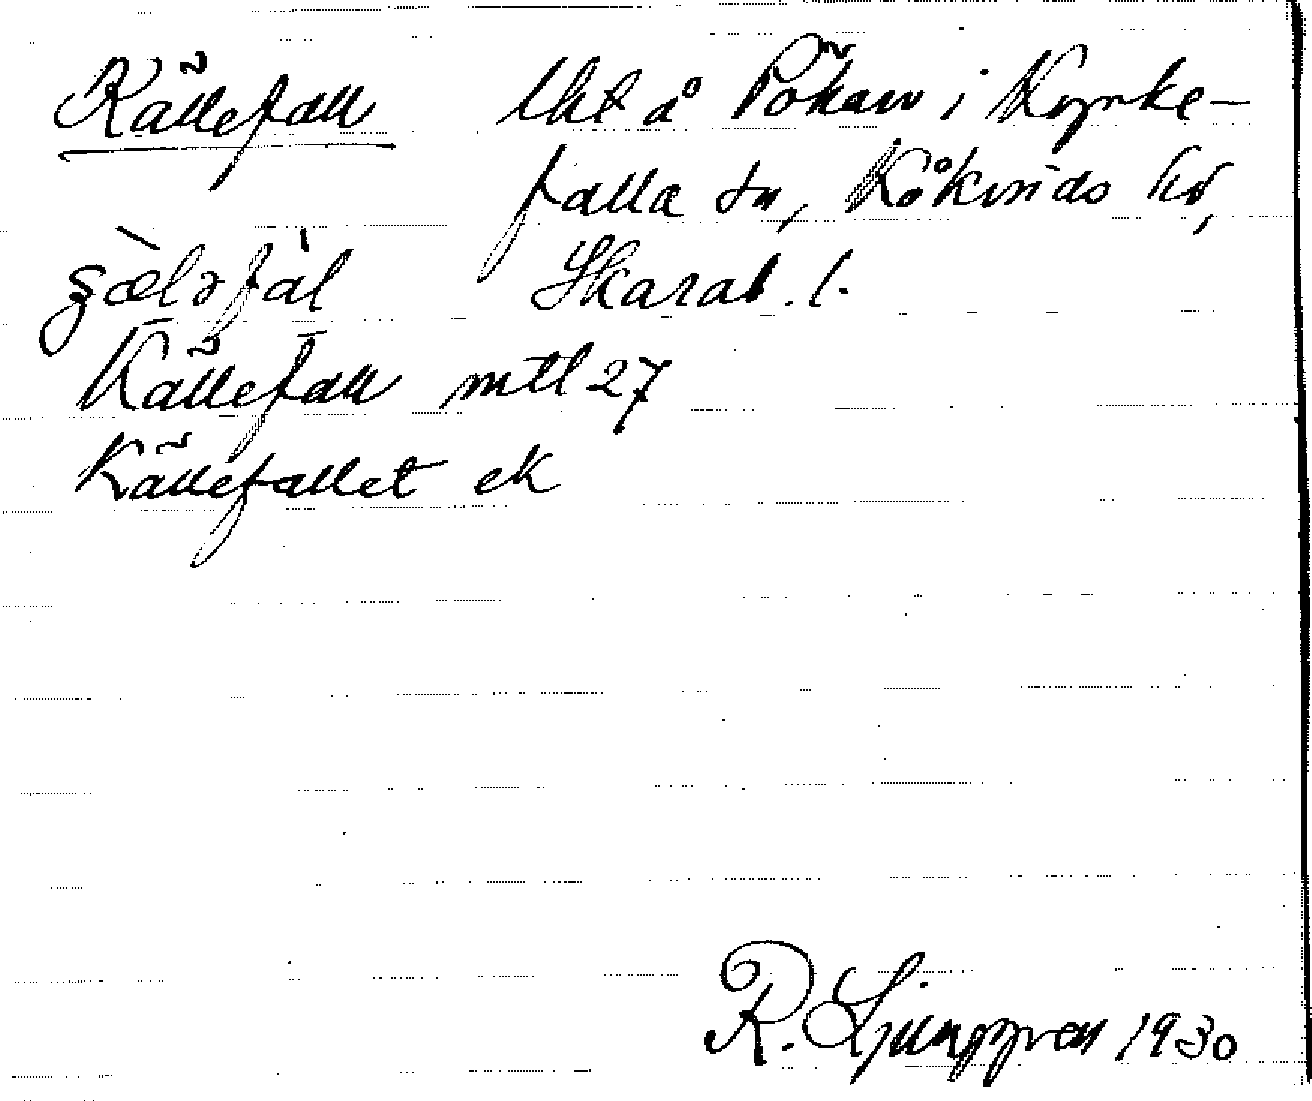 Källefall lht å Pökaw i Kyrke-
falla sn, Kåkinds hd,
Skarab. l.
Källefall mtl 27
Källefallet ek
R. Ljunggren 1930